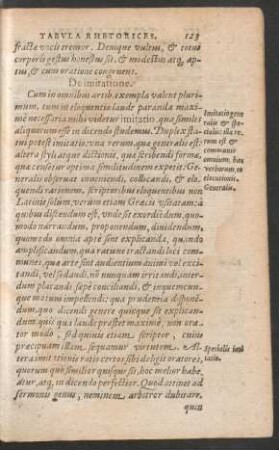 TABULA RHETORICES. 123
fractæ vocis tremor. Denique vultus, & totus
corporis gestus honestus sit, & modestus atq, ap-
tus, & cum oratione congruens.
De imitatione.
Cum in omnibus artib. exempla valent pluri-
mum, tum in eloquentiæ laude paranda maxi-
mè necessaria mihi videtur imitatio, qua similes
aliquorum esse in dicendo studemus. Duplex sta-
tui potest imitatio, vna rerum, quæ generalis est:
altera stylι atque dictionis, quæ scribendi formã,
quæ censetur optima similitudinem expetit. Ge-
neralis obseruat inueniendi, collocandi, & elo-
quendi rationem, scriptoribus eloquentibus non
Latinis solum, verum etiam Græcis vsitatam: à
quibus discendum est, vnde sit exordiendum, quo-
modo narrandum, proponendum, diuidendum,
quæ vero omnia apte sint explicanda, quando
amplificandum, qua ratione tractandi loci com-
munes, quæ arte sint audientium animi vel exci-
tandi, vel sedandi, nõ nunquam irritandi, inter-
dum placandi sæpè conciliandi, & in quemcun-
que motum impellendi: qua prudentia disponẽ-
dum, quo dicendi genere quicque sit explican-
dum, quis qua laude præstet maximè, non ora-
tor modo, sed quiuis etiam scriptor, cuius
præcipuam illam sequamur virtutem. Al-
tera imitationis ratio certos sibi deligit oratores,
quorum sit similis, quisque sit, hoc melior habe-
atur, atq, in dicendo perfectior. Quod attinet ad
sermonis genus, neminem arbitror dubitare,
quin
Imitatio gene
ralis & spe-
cialis: illa re-
rum est &
communis
omnium, hæc
verborum &
elocutionis.
Generalis.
Specialis imi
tatio.